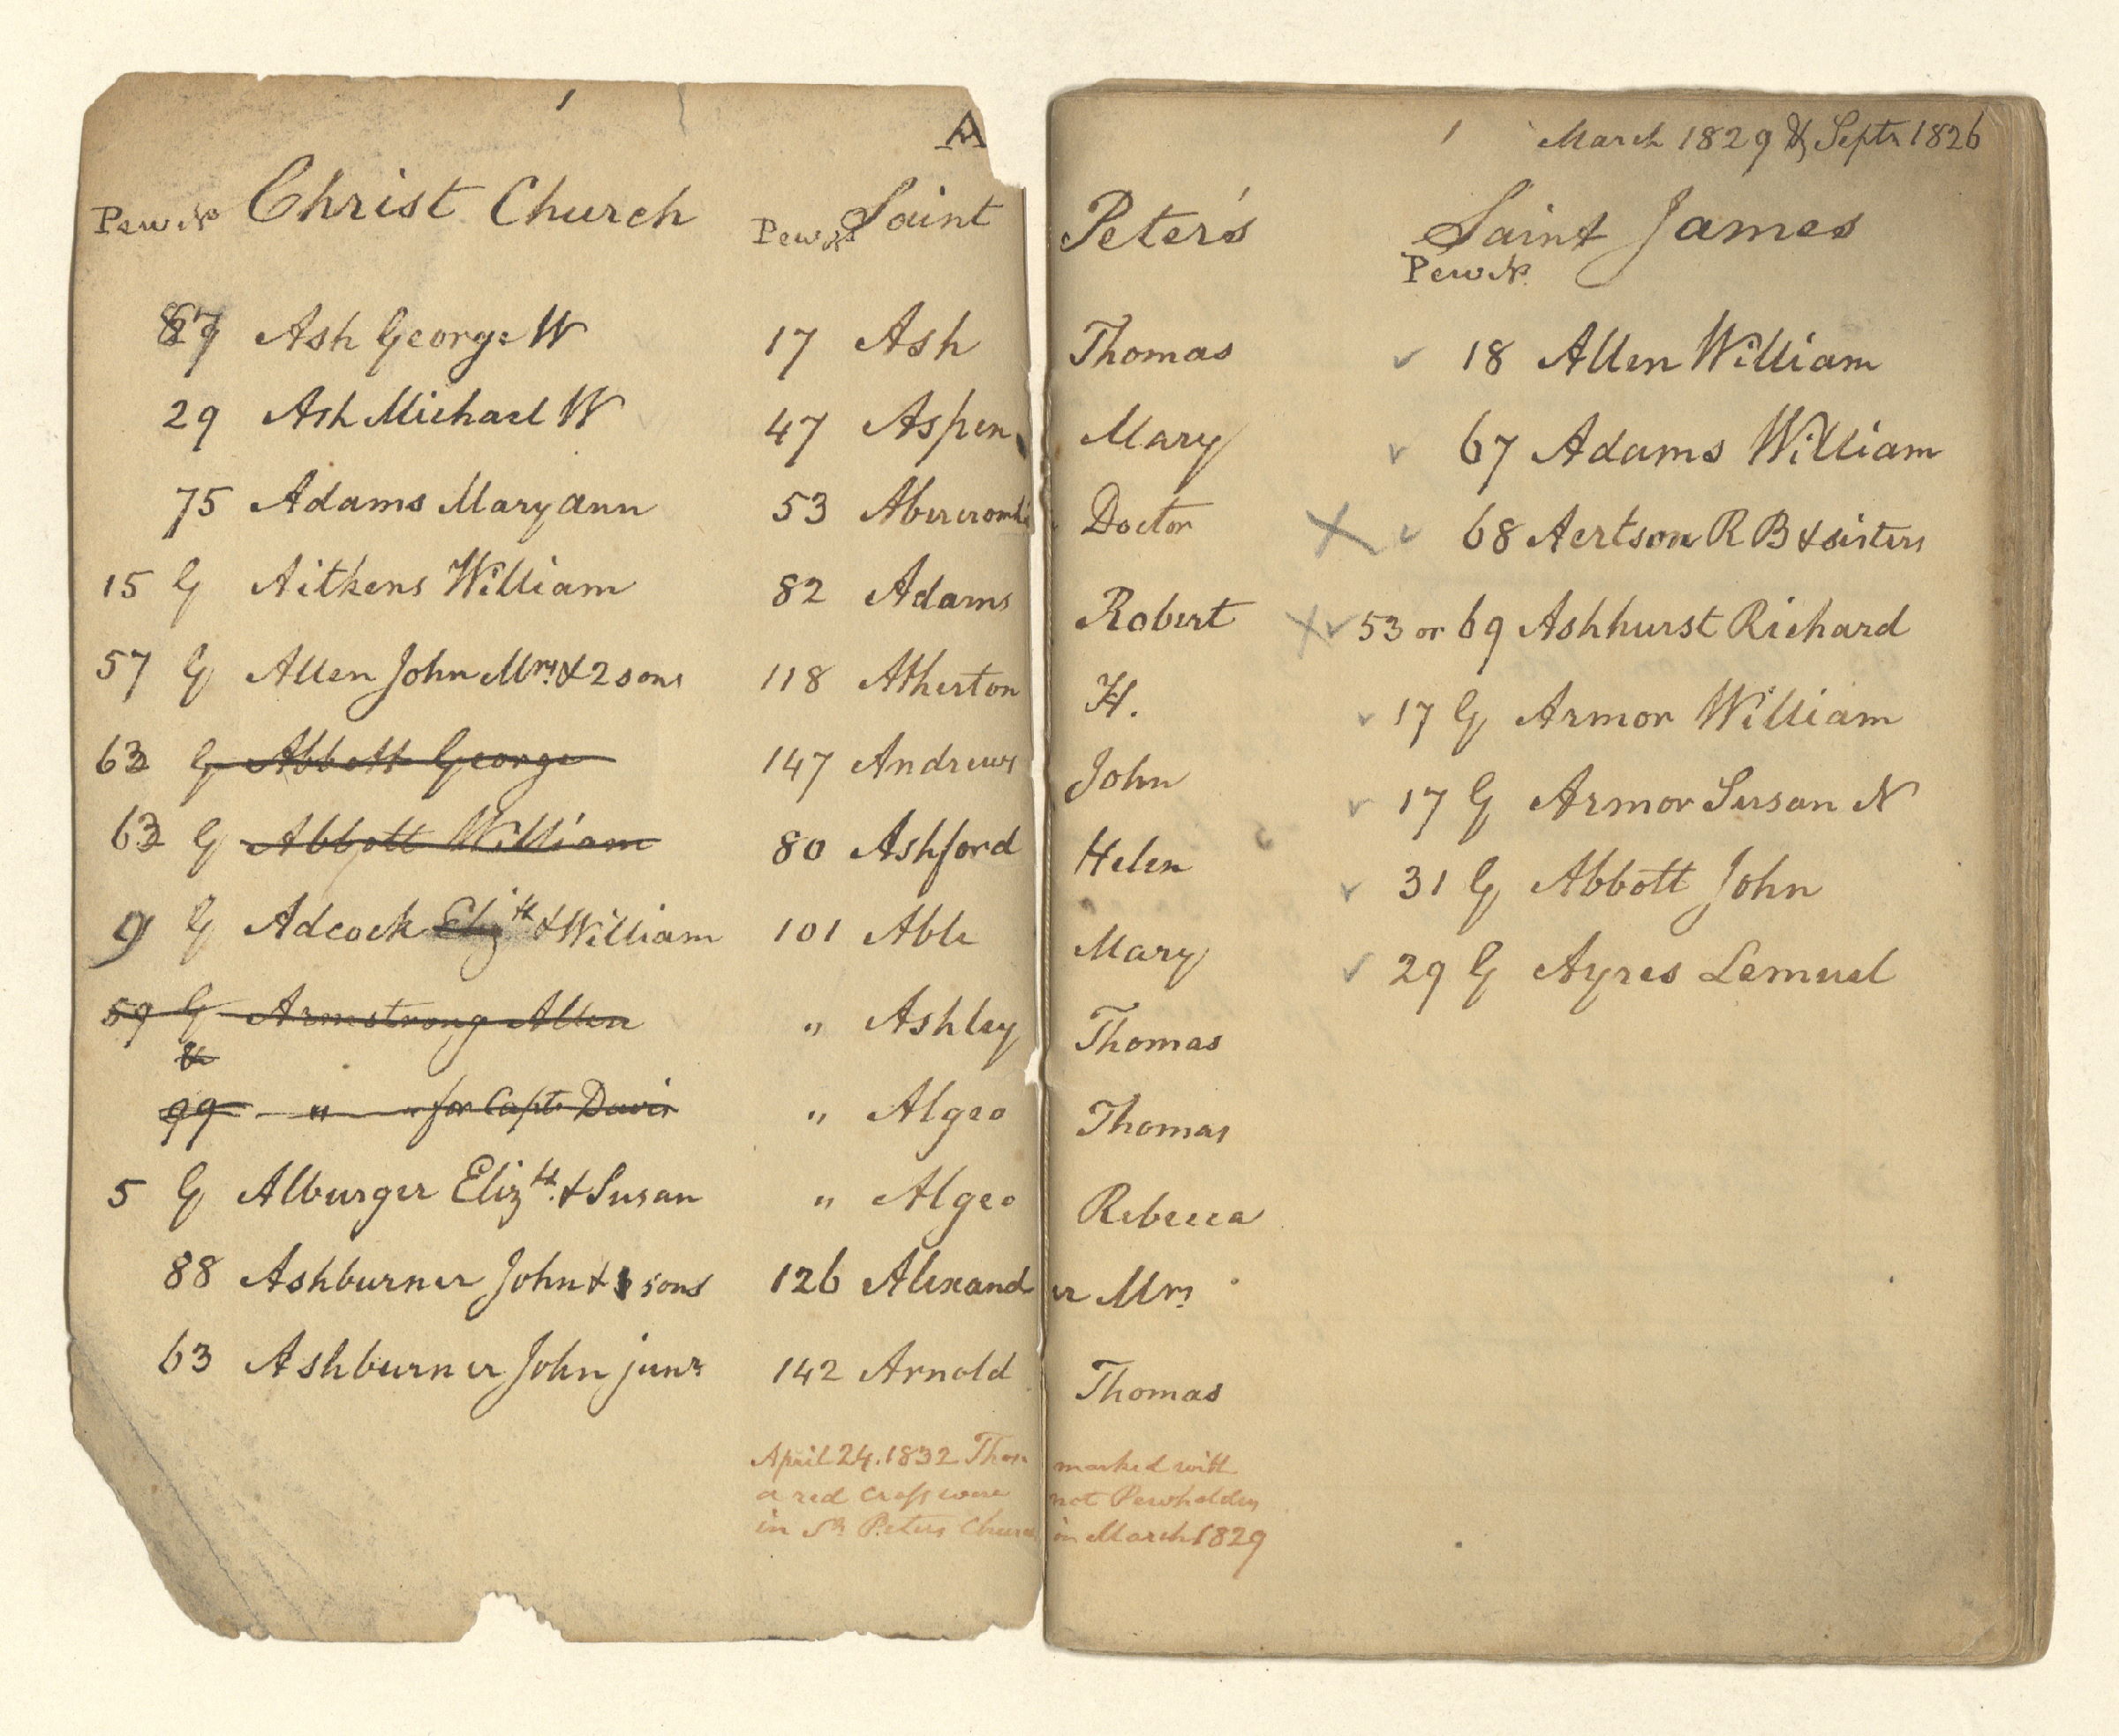 1
A
1 March 1829 & Septr 1826
Pew No Christ Church Pew No Saint Peter's Saint James
Pew No
Ash George W 17 Ash Thomas 18 Allen William
29 Ash Michael W 47 Aspen Mary 67 Adams William
75 Adams Mary ann 53 Abercrombie Doctor 68 Aertson R B & sisters
15 G Aitkens William 82 Adams Robert 53 or 69 Ashhurst Richard
57 G Allen John Mrs & 2 sons 118 Atherton H. 17 G Armor William
63 G Abbott George 147 Andrews John 17 G Armor Susan N
63 G Abbott William 80 Ashford Helen 31 G Abbott John
9 G Adcock Elizth & William 101 Able Mary 29 G Ayres Lemuel
59 G Armstrong Allen " Ashley Thomas
&
99 " " for Capt. Davis " Algeo Thomas
5 G Alburger Elizth. & Susan " Algeo Rebecca
88 Ashburner John & sons 126 Alexander Mrs
63 Ashburner John junr 142 Arnold Thomas
April 24. 1832 Those marked with
a red Cross were not Pewholders
in St. Peters Church in March 1829